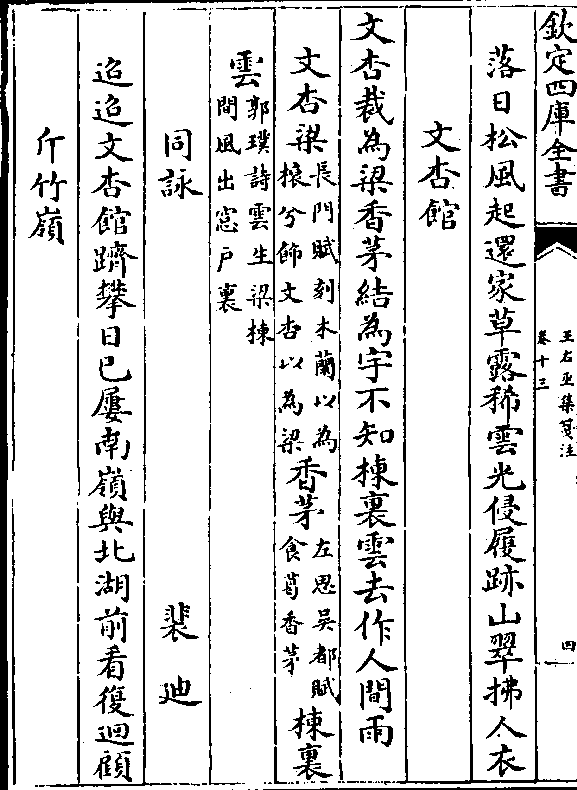 欽定四庫全書
王右丞集箋注
卷十三
四
落日松風起還家草露稀雲光侵履跡山翠拂人衣
文杏館
文杏裁為梁香茅結為宇不知棟裏雲去作人間雨
文杏梁長門賦刻木蘭以為榱兮飾文杏以為梁香茅左思吳都賦食葛香茅棟裏
雲郭璞詩雲生梁棟間風出窓戶裏
同詠 裴迪
迢迢文杏館躋攀日已屢南嶺與北湖前看復迴顧
斤竹嶺